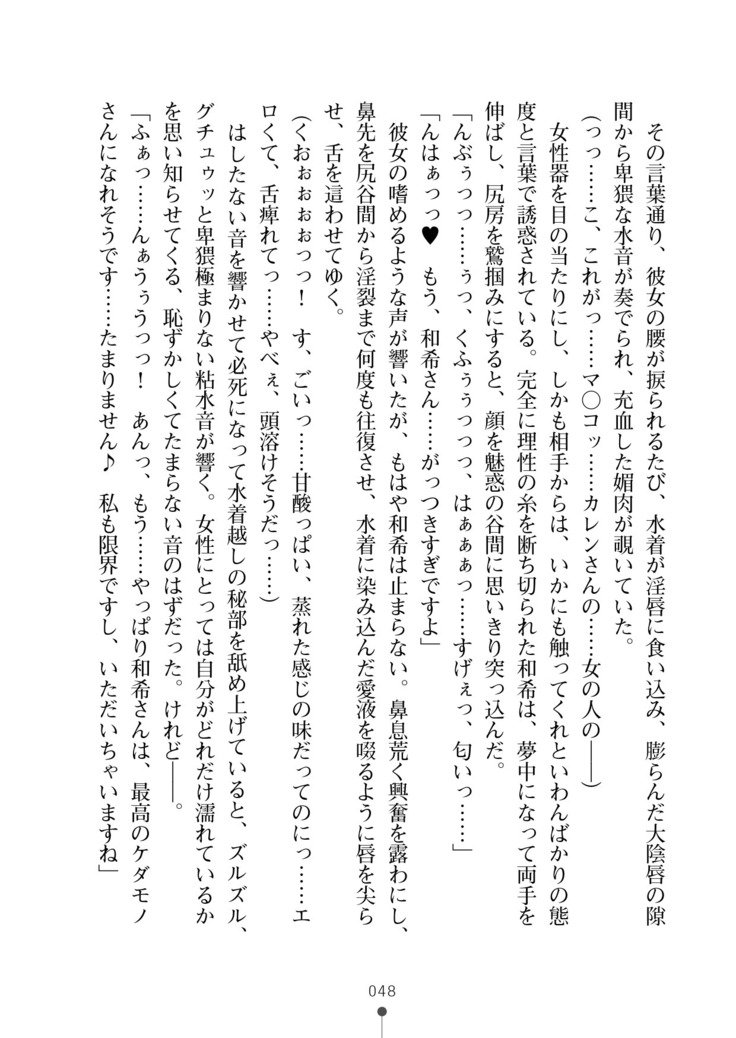 その言葉通り、彼女の腰が捩られるたび、水着が淫唇に食い込み、膨らんだ大陰唇の隙
間から卑猥な水音が奏でられ、充血した媚肉が覗いていた。
(っっ……こ、これがっ……マ〇コッ……カレンさんの……女の人の――)
女性器を目の当たりにし、しかも相手からは、いかにも触ってくれといわんばかりの態
度と言葉で誘惑されている。完全に理性の糸を断ち切られた和希は、夢中になって両手を
伸ばし、尻房を鷲掴みにすると、顔を魅惑の谷間に思いきり突っ込んだ。
「んぶぅっっ……ぅっ、くふぅぅっっっ、はぁぁぁっ……すげぇっ、匂いっ……」
「んはぁっっ♥　もう、和希さん……がっつきすぎですよ」
彼女の嗜めるような声が響いたが、もはや和希は止まらない。鼻息荒く興奮を露わにし、
鼻先を尻谷間から淫裂まで何度も往復させ、水着に染み込んだ愛液を啜るように唇を尖ら
せ、舌を這わせてゆく。
(くおぉぉぉぉっっ！　す、ごいっ……甘酸っぱい、蒸れた感じの味だってのにっ……エ
ロくて、舌痺れてっ……やべぇ、頭溶けそうだっ……)
はしたない音を響かせて必死になって水着越しの秘部を舐め上げていると、ズルズル、
グチュゥッと卑猥極まりない粘水音が響く。女性にとっては自分がどれだけ濡れているか
を思い知らせてくる、恥ずかしくてたまらない音のはずだった。けれど――。
「ふぁっ……んぁうぅうっっ！　あんっ、もう……やっぱり和希さんは、最高のケダモノ
さんになれそうです……たまりません♪　私も限界ですし、いただいちゃいますね」
048